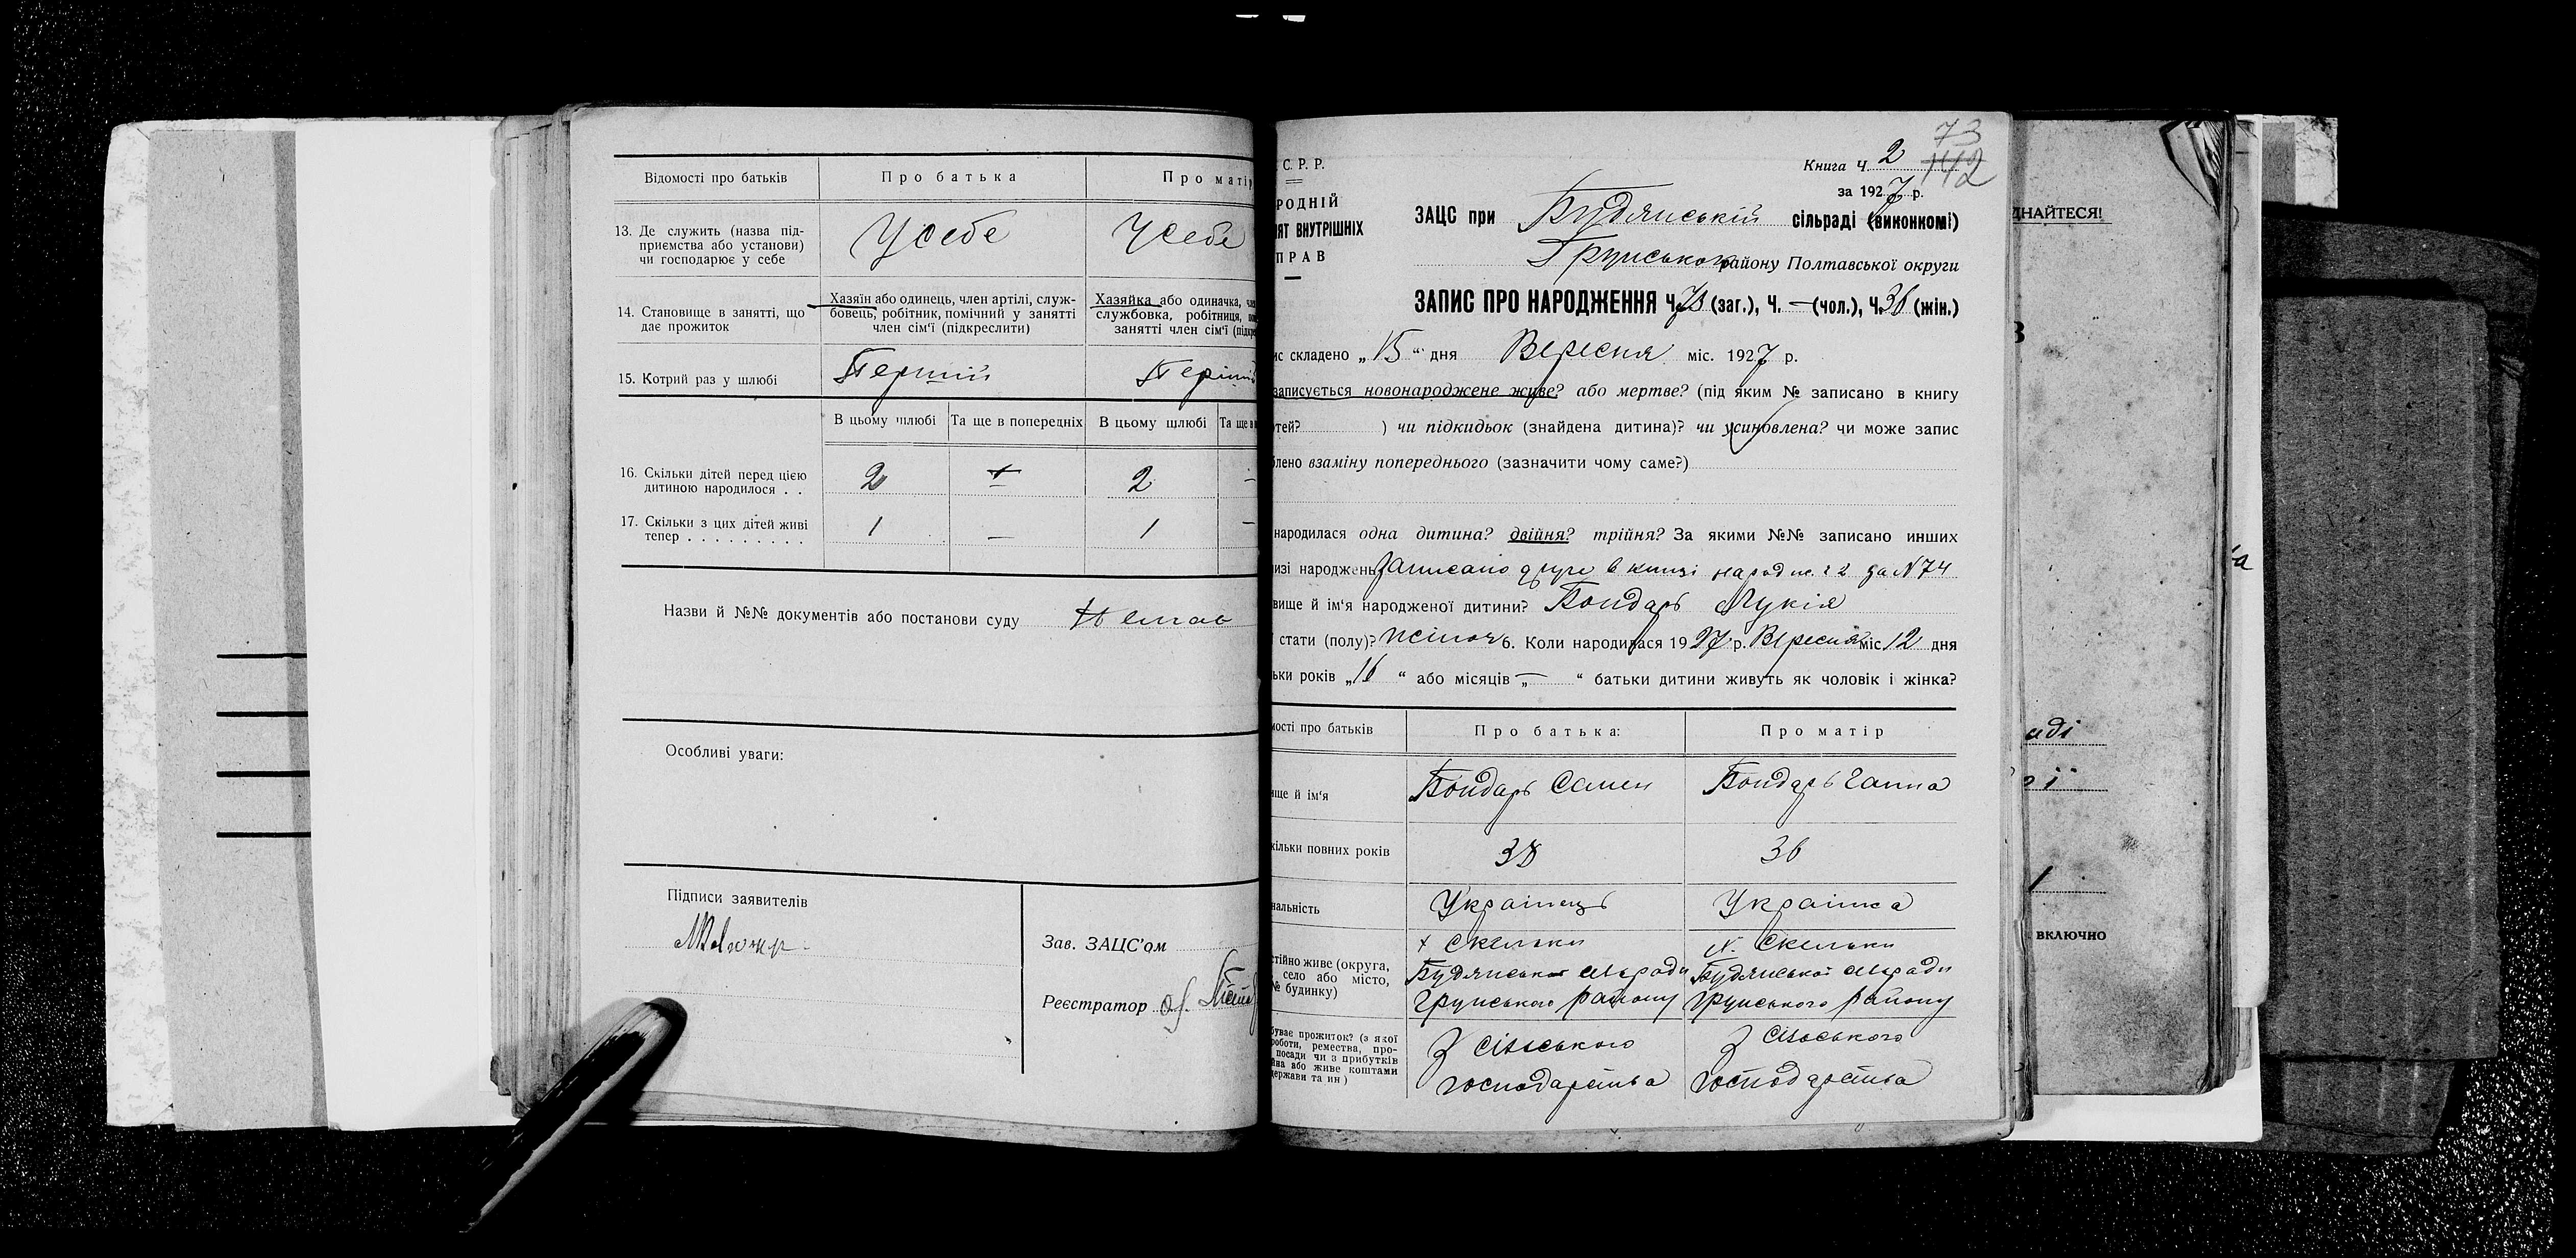 Відомості про батьків
Про батька
Про матір
13. Де служить (назва під-
приємства або установи)
чи господарює у себе
У себе
У себе
14. Становище в занятті, що
дає прожиток
Хазяїн або одинець, член артілі, служ-
бовець, робітник, помічний у занятті
член сім'ї (підкреслити)
Хазяйка або одиначка,
службовка, робітниця,
занятті член сім'ї
15. Котрий раз у шлюбі
Перший
В цьому шлюбі
Та ще в попередніх
В цьому шлюбі
Та ще в
16. Скільки дітей перед цією
дитиною народилося . .
2
2
17. Скільки з цих дітей живі
тепер . . . . . . . . .
1
—
1
—
Назви й №№ документів або постанови суду
Немає
Особливі уваги:
Підписи заявителів
Зав. ЗАЦС'ом
Реєстратор
С. Р. Р.
РОДНІЙ
ЯТ ВНУТРІШНІХ
ПРАВ
73
142
Книга Ч. 2
за 1927 р.
ЗАЦС при Будянській сільраді (виконкомі)
Грунського району Полтавської округи
ЗАПИС ПРО НАРОДЖЕННЯ Ч. 73 (заг.), Ч. — (чол.), Ч. 36 (жін.)
ис складено „15“ дня Вересня міс. 1927 р.
записується новонароджене живе? або мертве? (під яким № записано в книгу
тей? ) чи підкидьок (знайдена дитина)? чи усиновлена? чи може запис
блено взаміну попереднього (зазначити чому саме?)
народилася одна дитина? двійня? трійня? За якими №№ записано инших
изі народжень? Записано друге в книзі народж. ч 2 за N 74
вище й ім'я народженої дитини? Бондарь Лукія
стати (полу)? жіноч 6. Коли народилася 1927 р. Вересня міс 12 дня
ьки років „16“ або місяців „—“ батьки дитини живуть як чоловік і жінка?
мості про батьків
Про батька:
Про матір
ище й ім'я
Бондарь Семен
Бондарь Ганна
кільки повних років
38
36
нальність
Українець
Українка
стійно живе (округа,
село або місто,
№ будинку)
х Скельки
Будянської сільради
Грунського району
х. Скельки
Будянської сільради
Грунського району
буває прожиток? (з якої
роботи, ремества, про-
посади чи з прибутків
йна або живе коштами
держави та ин)
З сільського
господарства
З сільського
господарства
ДНАЙТЕСЯ!
В
аді
ої
1
включно